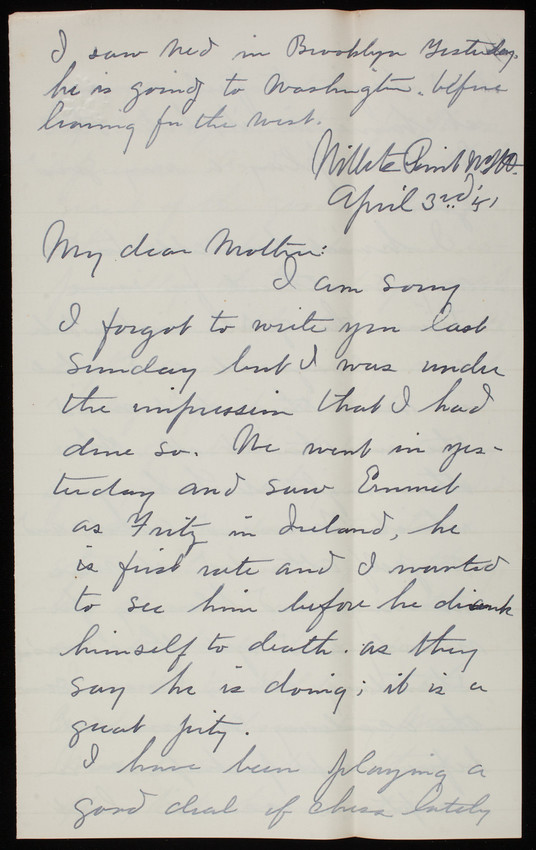 I saw Ned in Brooklyn yesterday.
he is going to Washington. before
leaving for the West.
Willets Point NYH.
April 3rd
My dear Mother:
I am sorry
I forgot to write you last
Sunday but I was under
the impression that I had
done so. We went in yes-
terday and saw Emmet
as Fritz in Ireland, he
is first rate and I wanted
to see him before he drank
himself to death. as they
say he is doing; it is a
great pity.
I have been playing a
good deal of chess lately